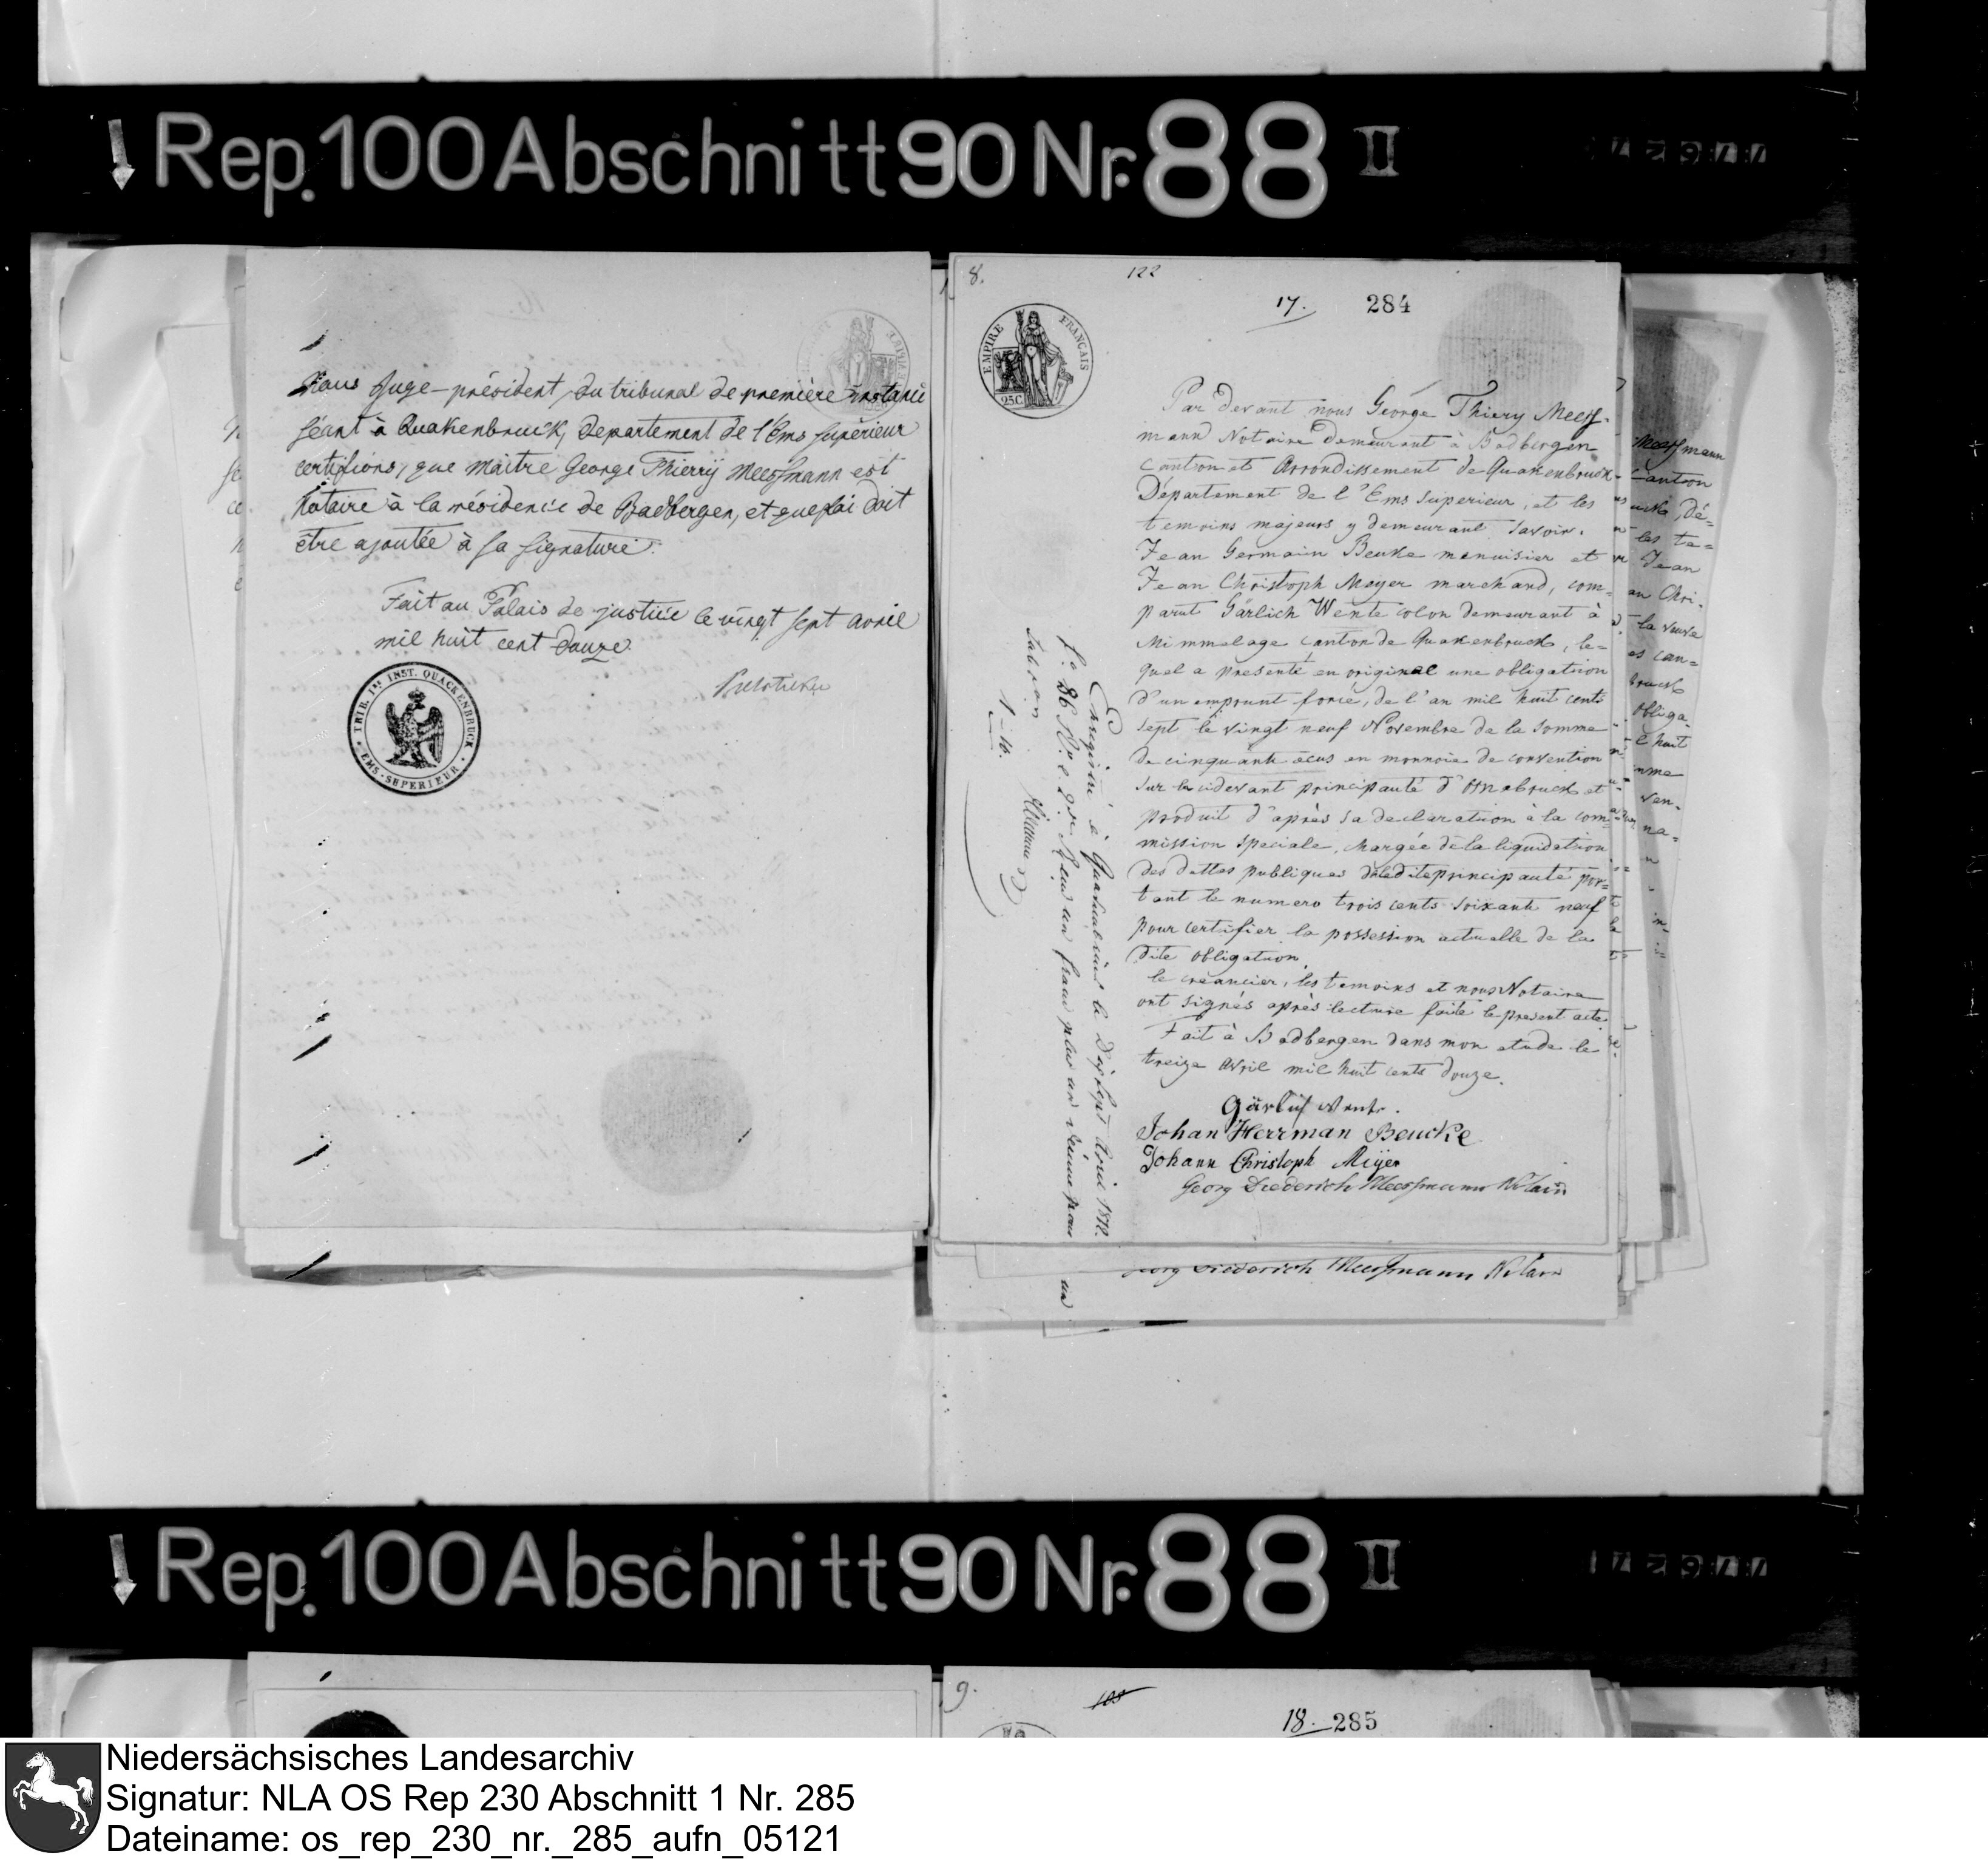 Rep. 100 Abschnitt 90 Nr. 88 II
Nous Juge-président du tribunal de première instance
séant à Quakenbruck, Departement de l'Ems supérieur
certifions, que maitre George Thierrÿ Meessmann est
Notaire à la résidence de Badbergen, et que foi doit
être ajoutée à sa signature.
Fait au Palais de justice le vingt sept avril
mil huit cent douze.
TRIB. 1re INST. QUACKENBRUCK
EMS-SUPERIEUR
8.
122
17. 284
EMPIRE FRANÇAIS
25C
Par devant nous George Thiery Meess-
mann Notaire demeurant à Badbergen
Canton et Arrondissement de Quakenbruck
Département de l'Ems Superieur, et les
temoins majeurs y demeurant savoir.
Jean Germain Beuke menuisier et
Jean Christoph Meyer marchand, com-
parut Gärlich Wente colon demeurant à
Mimmelage canton de Quakenbruck, le-
quel a presenté en original une obligation
d'un emprunt forcé, de l'an mil huit cents
sept le vingt neuf Novembre de la somme
de cinquante écus en monnoie de convention
sur la cidevant principauté d'Osnabruck et
produit d'après sa declaration à la com-
mission speciale, chargée de la liquidation
des dettes publiques de ledite principauté por-
tant le numero trois cents soixante neuf
pour certifier la possession actuelle de la
dite obligation.
le créancier, les temoins et nous Notaire
ont signés après lecture faite le present acte.
Fait à Badbergen dans mon etude le
treize Avril mil huit cents douze.
Gärlich Wente.
Johan Herrman Beucke
Johann Christoph Meÿer
Georg Diederich Meessmann Notair
Enregistré à Quakenbruck le dix sept Avril 1812.
fo. 86 Reçu un franc plus un decime pour
1-10.
Georg Diederich Meessmann Notair
Rep. 100 Abschnitt 90 Nr. 88 II
9.
18. 285
Niedersächsisches Landesarchiv
Signatur: NLA OS Rep 230 Abschnitt 1 Nr. 285
Dateiname: os_rep_230_nr._285_aufn_05121